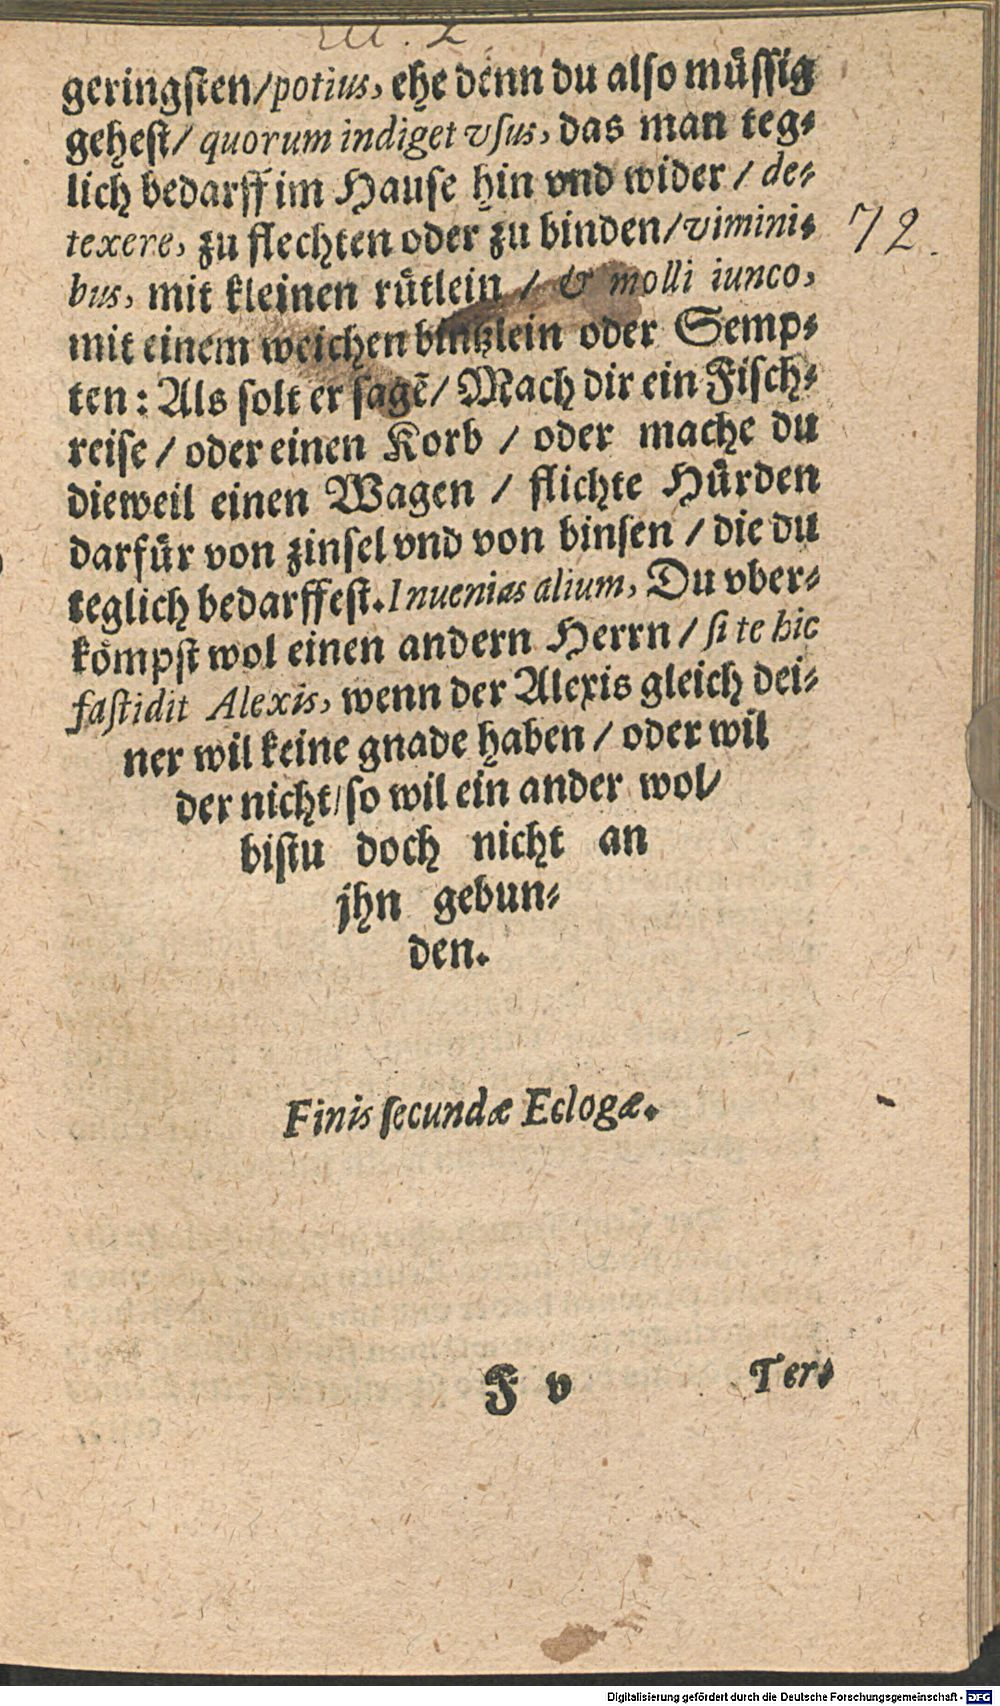 geringsten/potius, ehe denn du also müssig
gehest/ quorum indiget vsus, das man teg-
lich bedarff im Hause hin vnd wider / de-
texere, zu flechten oder zu binden/vimini-
72.
bus, mit kleinen rütlein / & molli iunco,
mit einem weichen bintzlein oder Semp-
ten: Als solt er sagē/ Mach dir ein Fisch-
reise / oder einen Korb / oder mache du
dieweil einen Wagen / flichte Hürden
darfür von zinsel vnd von binsen / die du
teglich bedarffest. Inuenias alium, Du vber-
kömpst wol einen andern Herrn / si te hic
fastidit Alexis, wenn der Alexis gleich dei-
ner wil keine gnade haben / oder wil
der nicht/so wil ein ander wol/
bistu doch nicht an
jhn gebun-
den.
Finis secundæ Eclogæ.
F v Ter-
Digitalisierung gefördert durch die Deutsche Forschungsgemeinschaft - DFG